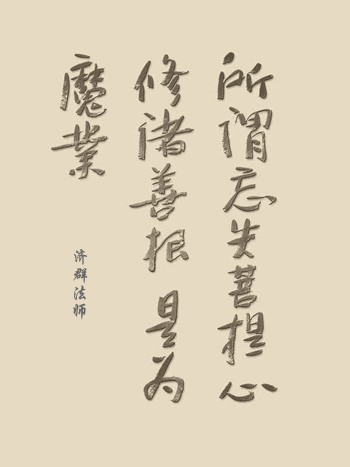 所谓忘失菩提心
修诸善根 是为
魔业
济群法师